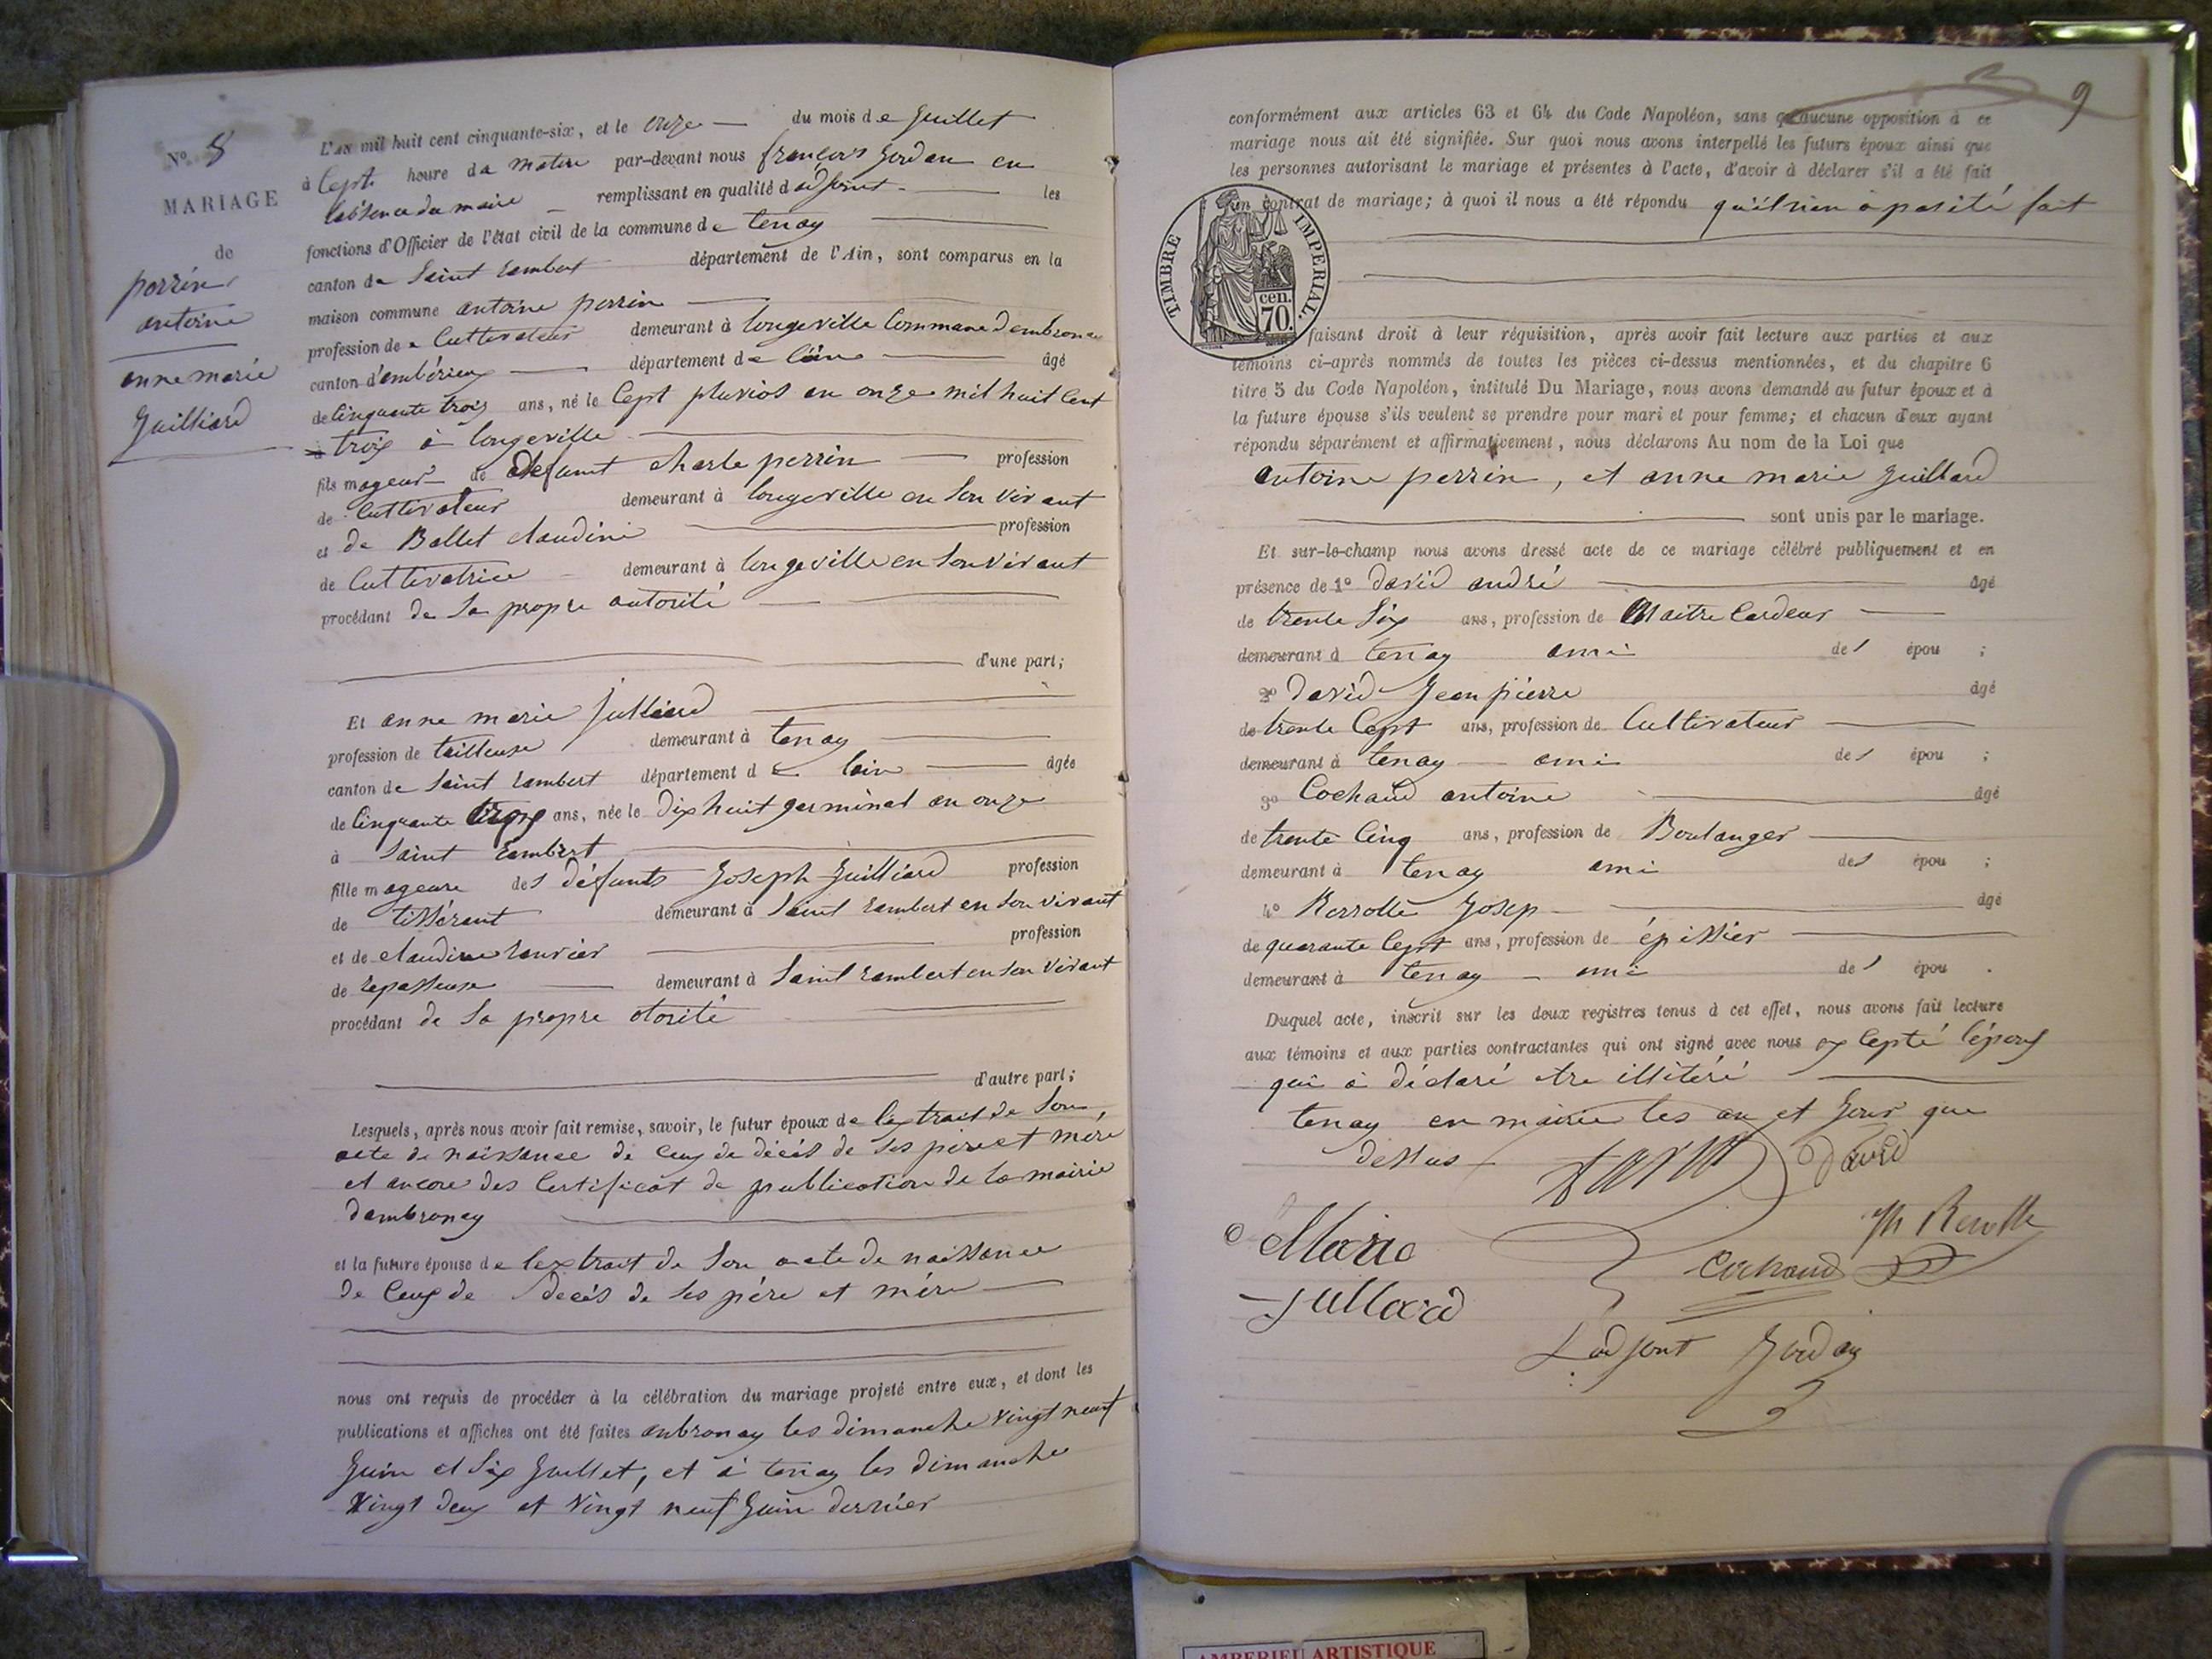 N.o 8
MARIAGE
de
perrin
antoine
anne marie
Juilliard
L'AN mil huit cent cinquante-six, et le onze du mois de Juillet
à Sept heure da matin par-devant nous françois Jordan en
labsence du maire remplissant en qualité d adjoint les
fonctions d'Officier de l'état civil de la commune de tenay
canton de Saint rambert département de l'Ain, sont comparus en la
maison commune antoine perrin
profession de Cultivateur demeurant à longeville Commune dambronay
canton d'ambérieux département de l'ain âgé
de Cinquante trois ans, né le Sept pluvios an onze mil huit Cent
trois à longeville
fils mageur de defunt charle perrin profession
de Cultivateur demeurant à longeville en Son vivant
et de Ballet claudine profession
de Cultivatrice demeurant à longeville en Son vivant
procédant de Sa propre autorité
d'une part;
Et anne marie julliard
profession de tailleuse demeurant à tenay
canton de Saint rambert département de lain âgée
de Cinquante trois ans, née le Dix huit germinal an onze
à Saint rambert
fille mageure des défunts Joseph Juilliard profession
de tissérant demeurant à Saint rambert en Son vivant
et de claudine profession
de repasseuse demeurant à Saint rambert en Son vivant
procédant de Sa propre otorité
d'autre part;
Lesquels, après nous avoir fait remise, savoir, le futur époux de lextrait de Son
acte de naissance de Ceux de décès de Ses père et mère
et encore des Certificat de publication de la mairie
dambronay
et la future épouse de lextrait de Son acte de naissance
de Ceux de décés de Ses père et mère
nous ont requis de procéder à la célébration du mariage projeté entre eux, et dont les
publications et affiches ont été faites anbronay les dimanche vingt neuf
Juin et Six Juillet, et à tenay les dimanche
Vingt deux et Vingt neuf Juin dernier
9
conformément aux articles 63 et 64 du Code Napoléon, sans qu'aucune opposition à ce
mariage nous ait été signifiée. Sur quoi nous avons interpellé les futurs époux ainsi que
les personnes autorisant le mariage et présentes à l'acte, d'avoir à déclarer s'il a été fait
un contrat de mariage; à quoi il nous a été répondu qu'il rien à pasité fait
TIMBRE IMPERIAL.
cen.
70.
faisant droit à leur réquisition, après avoir fait lecture aux parties et aux
témoins ci-après nommés de toutes les pièces ci-dessus mentionnées, et du chapitre 6
titre 5 du Code Napoléon, intitulé Du Mariage, nous avons demandé au futur époux et à
la future épouse s'ils veulent se prendre pour mari et pour femme; et chacun d'eux ayant
répondu séparément et affirmativement, nous déclarons Au nom de la Loi que
antoine perrin, et anne marie Juillard
sont unis par le mariage.
Et sur-le-champ nous avons dressé acte de ce mariage célébré publiquement et en
présence de 1o david andré âgé
de trente Six ans, profession de Maitre Cardeur
demeurant à tenay ami des épou ;
2o David Jean pierre âgé
de trente Sept ans, profession de Cultivateur
demeurant à tenay ami des épou ;
3o Cochaud antoine âgé
de trente Cinq ans, profession de Boulanger
demeurant à tenay ami des épou ;
4o Rerrolle Josep âgé
de quarante Sept ans, profession de épissier
demeurant à tenay ami des épou .
Duquel acte, inscrit sur les deux registres tenus à cet effet, nous avons fait lecture
aux témoins et aux parties contractantes qui ont signé avec nous ex Septé lépoux
qui à déclaré etre illitéré
tenay en mairie les an et Jour que
dessus
David
David
Marie
Jullard
Cochaud
Ladjont Jordan
AMBERIEU ARTISTIQUE